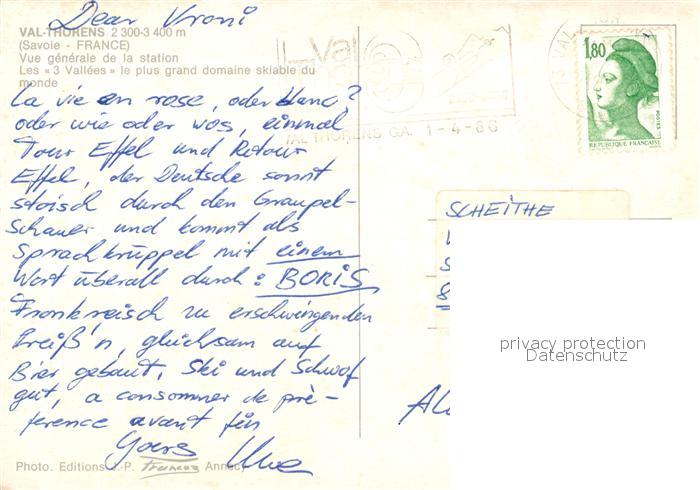 Dear Vroni
VAL-THORENS 2 300-3 400 m
(Savoie - FRANCE)
Vue générale de la station
Les « 3 Vallées » le plus grand domaine skiable du
monde
La vie en rose, oder
oder wie oder wos, einmal
Tour Eiffel und Retour
Eiffel, der Deutsche sonnt
stoisch durch den Graupel-
schauer und kommt als
Sprachkrüppel mit einem
Wort überall durch: BORIS
Frankreisch zu erschwingenden
Preiß'n, glücksam auf
Bier gebaut, Ski und Schwof
gut, a consommer de pré-
ference avant fin
Yours Uwe
Photo. Editions J.-P. Francoz Annecy
VAL THORENS
VAL-THORENS CA. 1-4-86
1,80
POSTES
REPUBLIQUE FRANÇAISE
SCHEITHE
privacy protection
Datenschutz